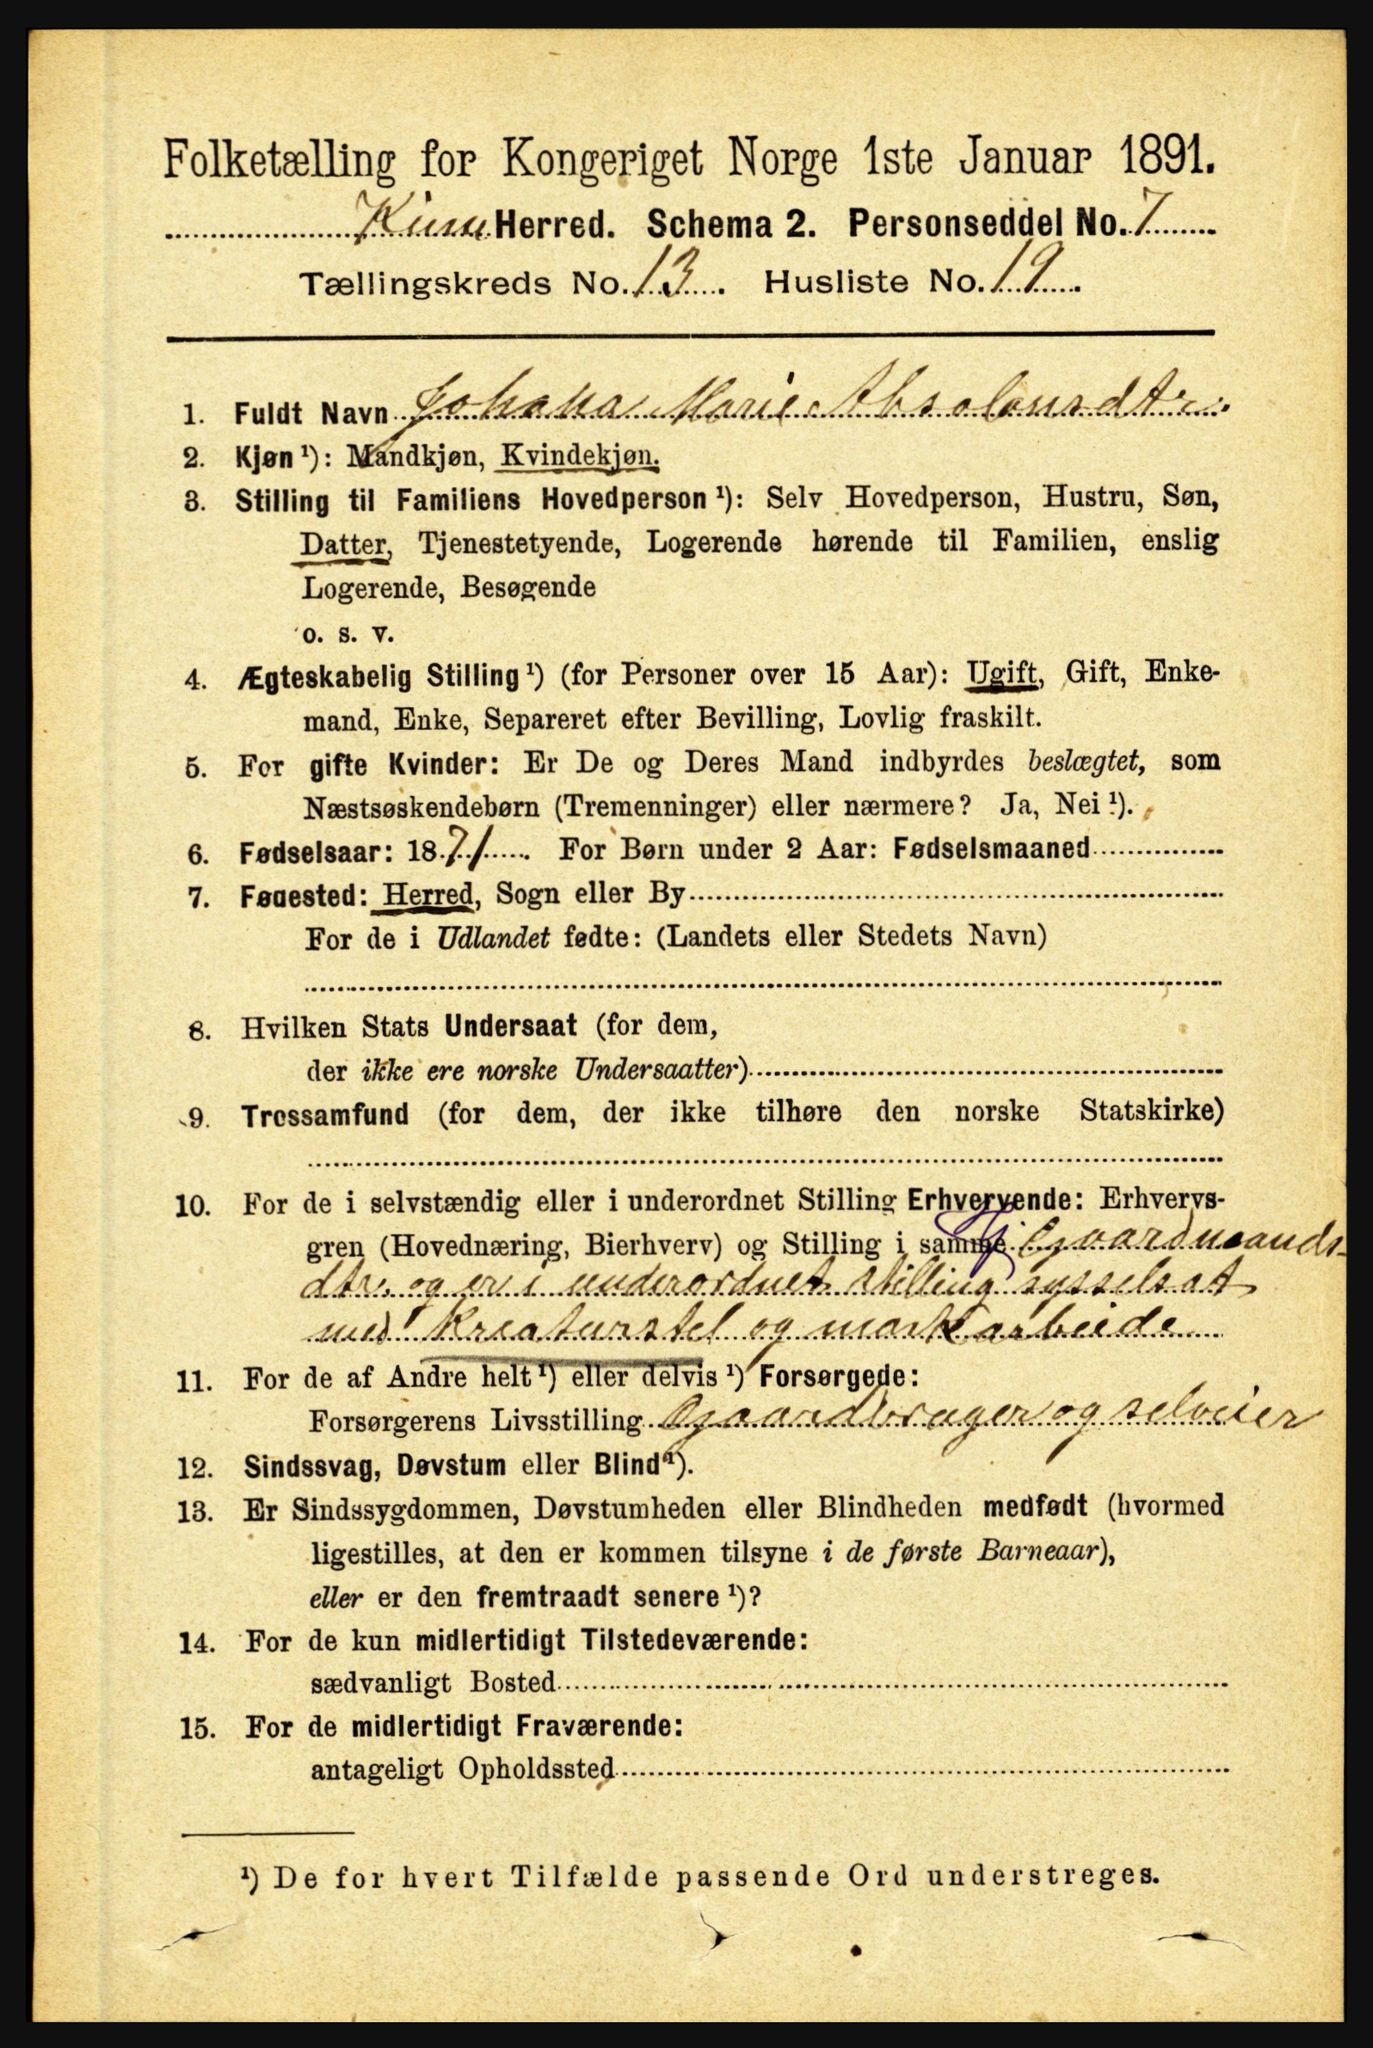 Folketælling for Kongeriget Norge 1ste Januar 1891.
Kinn Herred. Schema 2. Personseddel No. 7
Tællingskreds No. 13. Husliste No. 19.
1. Fuldt Navn Johana Marie Absolonsdtr.
2. Kjøn ¹): Mandkjøn, Kvindekjøn.
3. Stilling til Familiens Hovedperson ¹): Selv Hovedperson, Hustru, Søn,
Datter, Tjenestetyende, Logerende hørende til Familien, enslig
Logerende, Besøgende
o. s. v.
4. Ægteskabelig Stilling ¹) (for Personer over 15 Aar): Ugift, Gift, Enke-
mand, Enke, Separeret efter Bevilling, Lovlig fraskilt.
5. For gifte Kvinder: Er De og Deres Mand indbyrdes beslægtet, som
Næstsøskendebørn (Tremenninger) eller nærmere? Ja, Nei ¹).
6. Fødselsaar: 1871. For Børn under 2 Aar: Fødselsmaaned
7. Fødested: Herred, Sogn eller By
For de i Udlandet fødte: (Landets eller Stedets Navn)
8. Hvilken Stats Undersaat (for dem,
der ikke ere norske Undersaatter)
9. Trossamfund (for dem, der ikke tilhøre den norske Statskirke)
10. For de i selvstændig eller i underordnet Stilling Erhvervende: Erhvervs-
gren (Hovednæring, Bierhverv) og Stilling i samme Gaardmands-
dtr. og er i underordnet stilling sysselsat
med Kreaturstel og markarbeide
11. For de af Andre helt ¹) eller delvis ¹) Forsørgede:
Forsørgerens Livsstilling Gaardbruger og selveier
12. Sindssvag, Døvstum eller Blind ¹).
13. Er Sindssygdommen, Døvstumheden eller Blindheden medfødt (hvormed
ligestilles, at den er kommen tilsyne i de første Barneaar),
eller er den fremtraadt senere ¹)?
14. For de kun midlertidigt Tilstedeværende:
sædvanligt Bosted
15. For de midlertidigt Fraværende:
antageligt Opholdssted
¹) De for hvert Tilfælde passende Ord understreges.